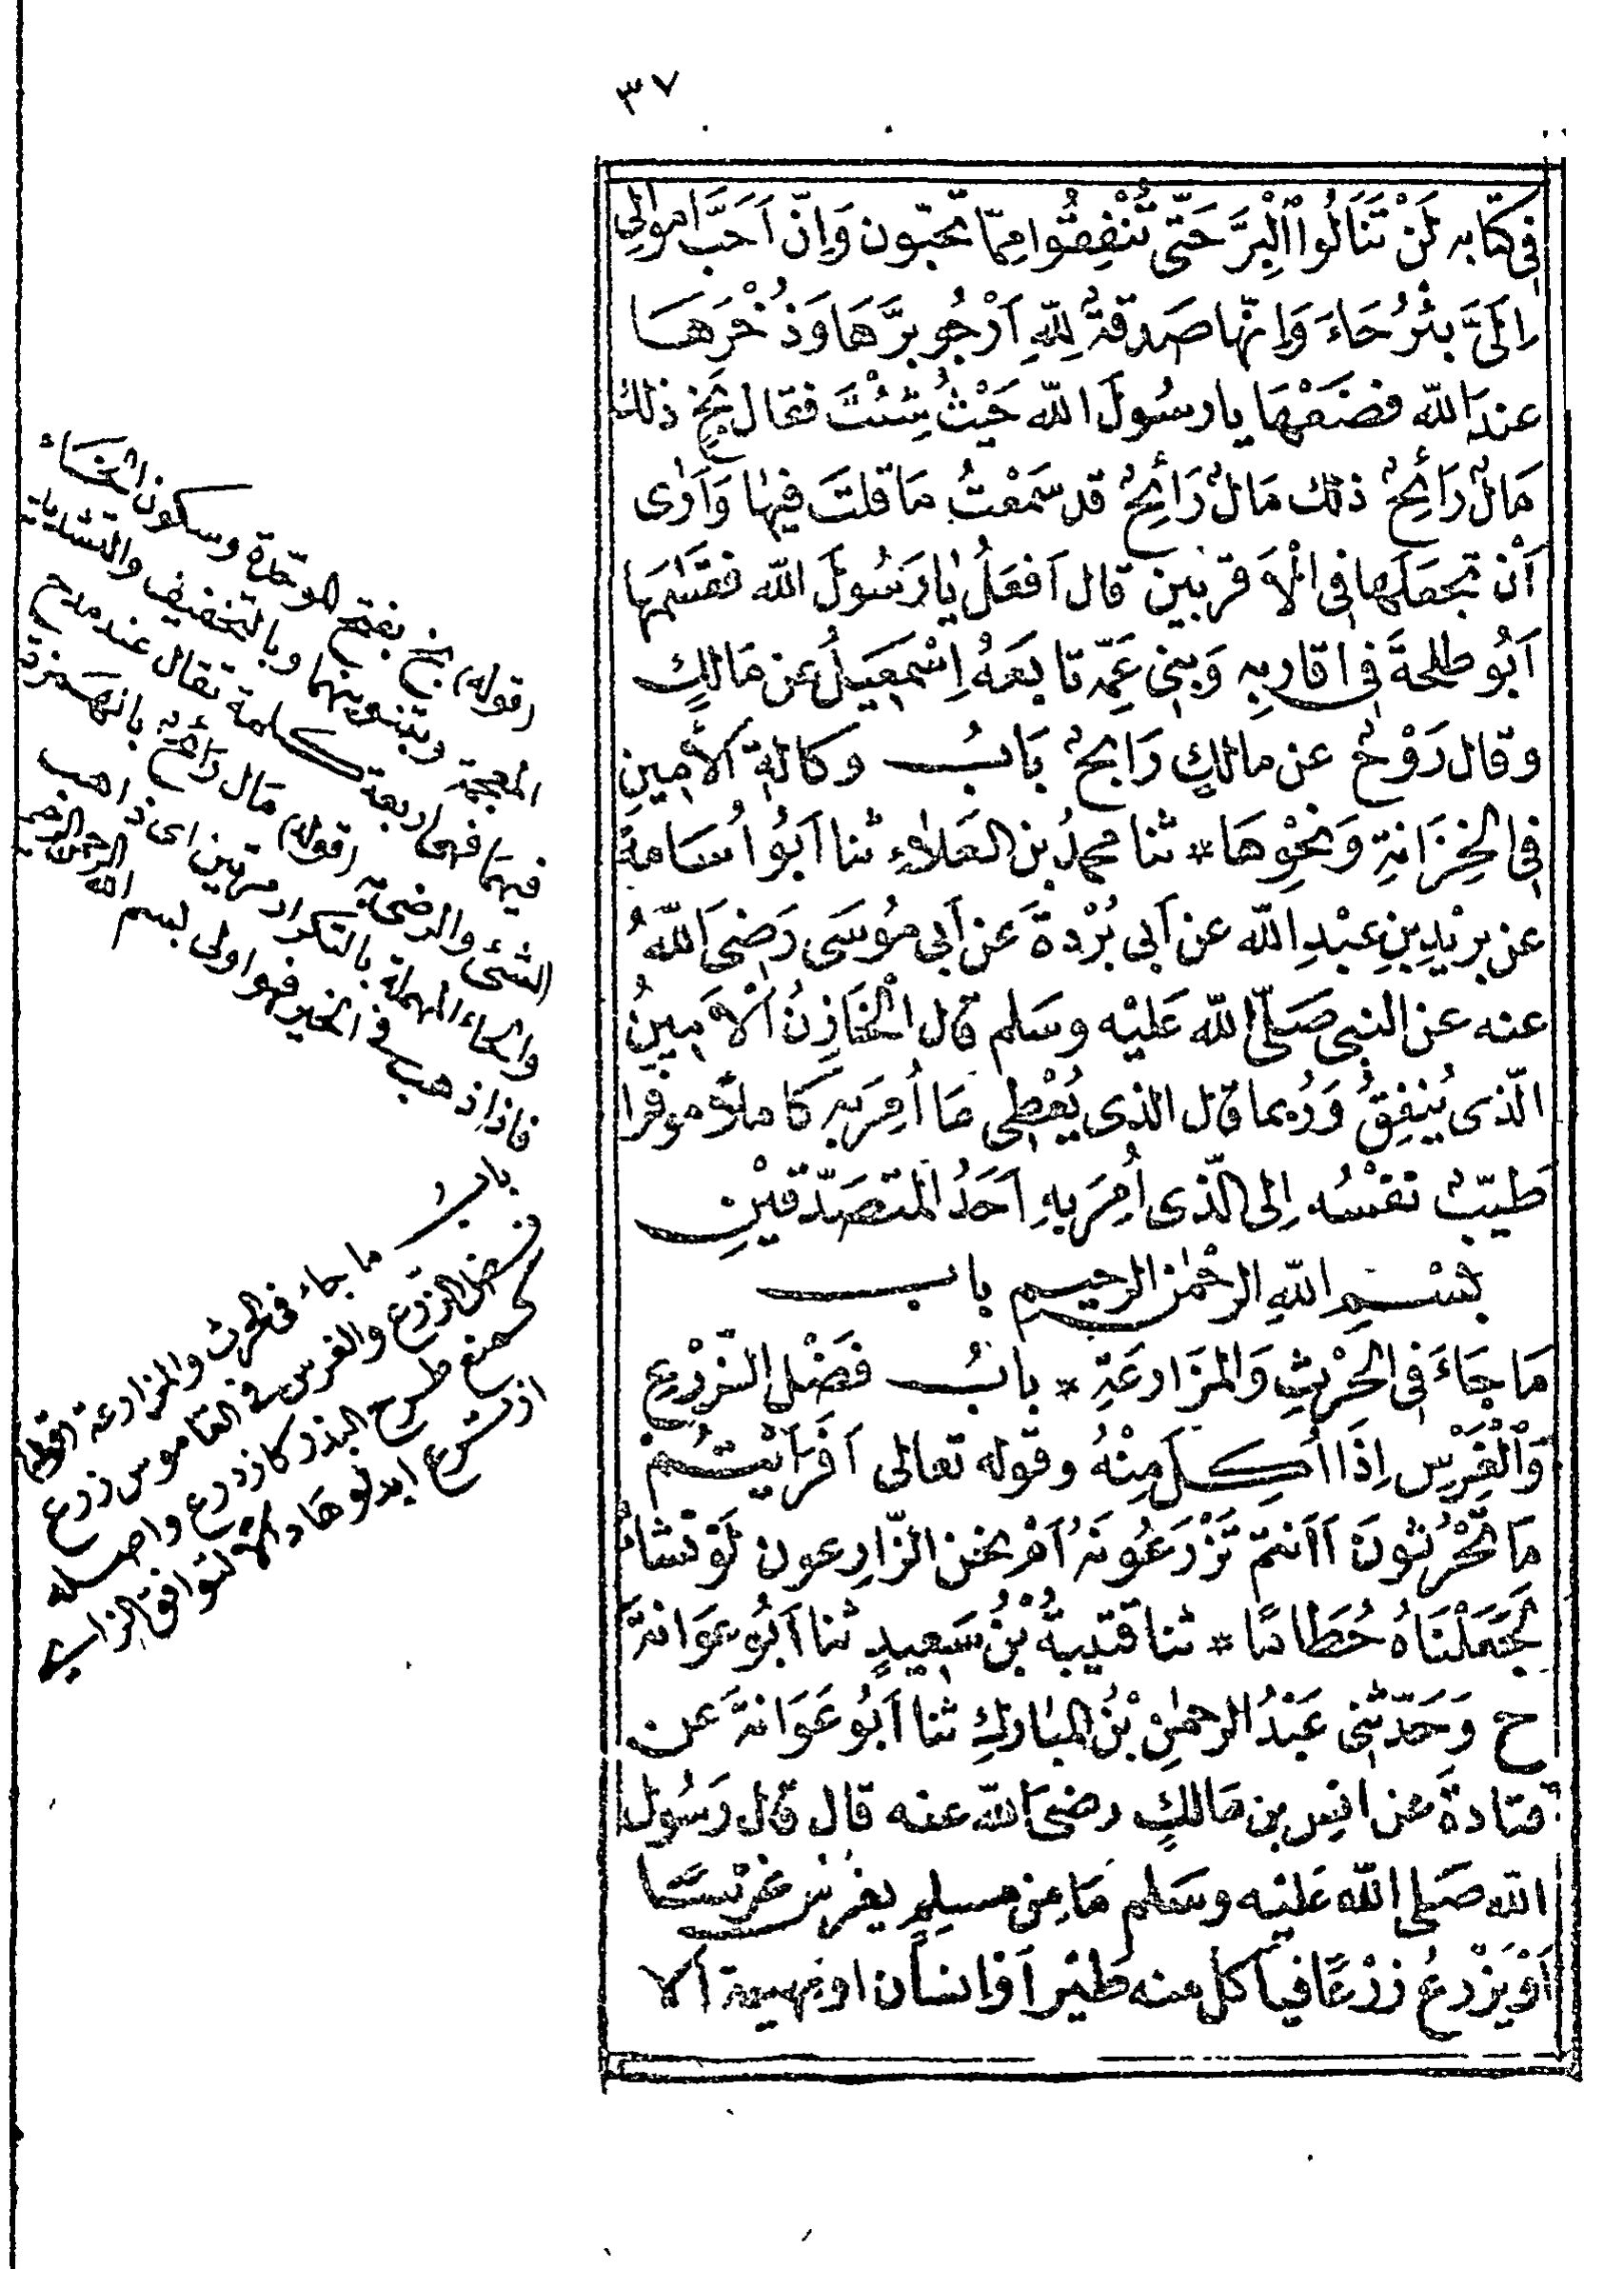 ٣٧
فِى كتَابه لَنْ تَنَالُوا الْبِرَّ حَتّى تُنْفِقُوا مِمّا تحبّون وَاِنّ اَحَبَّ اموالِى
اِلَىَّ بِئْرُحَاءَ وَاِنّها صَدقةٌ لِلّهِ اَرْجُو برَّهَا وَذُخْرَهَا
عندَ اللّه فضَعْهَا يا رسُولَ اللّه حَيْثُ شِئْتَ فقال بَخٍ ذلك
مَالٌ رَائِحٌ ذلك مَالٌ رَائِحٌ قد سَمعْتُ مَا قلتَ فيها وَاَرٰى
اَنْ تجعَلَها فِى الْاَقربين قال اَفعَلُ يٰا رَسُولَ اللّه فقسَمَها
اَبُو طلحةَ فِى اقاربِه وَبنِى عَمّه تابَعَهُ اِسْمٰعِيلُ عن مَالكٍ
وقال رَوْحٌ عن مالكٍ رَابحٌ بَابُ وكالةِ الأمِينِ
فِى الخِزَانةِ وَنحْوِهَا * ثنا محمدُ بن العَلاءِ ثنا اَبُو اُسَامةَ
عن بريْدِ بنِ عبْدِ اللّه عن اَبى بُرْدةَ عَن اَبى مُوسَى رَضىَ اللّهُ
عنه عن النبى صَلّى اللّه عَليْه وسَلم قال الْخَازِنُ الْاَمِينُ
الّذى يُنفِقُ وَرُبما قال الذى يُعْطِى مَا اُمِرَ به كَاملاً موفرا
طَيّبٌ نفسُه اِلى الّذى اُمِرَ بهِ اَحَدُ المتصَدّقَيْنِ
بِسْمِ اللّهِ الرحْمٰن الرحيم باب
مَا جَاءَ فِى الحَرْثِ وَالمزَارعَةِ * بابُ فَضْل الزّرْعِ
وَالْغَرْسِ اِذَا اُكِلَ مِنْهُ وقوله تعالى اَفَرَاَيْتُمْ
مَا تَحْرُثُونَ اَاَنتمْ تَزْرَعُونَهُ اَمْ نحْن الزّارِعون لَوْ نشَاءُ
لَجَعَلْنَاهُ حُطَامًا * ثنا قتيبةُ بْنُ سَعِيدٍ ثنا اَبُو عوَانةَ
ح وَحَدّثنِى عَبْدُ الرحمٰنِ بْنُ المبَاركِ ثنا اَبُو عَوَانةَ عَن
قتادةَ عَن انسِ بن مَالكٍ رضىَ اللّه عنه قال قال رَسُول
اللّه صَلى اللّه عَليْه وسَلم مَا مِن مسلِمٍ يغرسُ غرْسًا
اَوْ يَزْرعُ زرْعًا فياكل منه طيْر اَوْ انسَان او بهيمة اَلا
(قوله) بخ بفتح الموحّدة وسكون الخاء
المعجمة وبتنوينها وبالتخفيف والتشديد
فيهما فهى اربعة كلمة تقال عند مدح
الشئ والرضى به (قوله) مال رائح بالهمزة
والحاء المهملة بالتكرار مرتين اى ذاهب
فاذا ذهب فى الخير فهو اولى بسم اللّه الرحمن الرحيم
باب ما جاء فى الحرث والمزارعة
فضل الزرع والغرس فى القاموس زرع
كمنع طرح البذر كازدرع واصله
ازترع ابدلوها دالا لتوافق الزاى